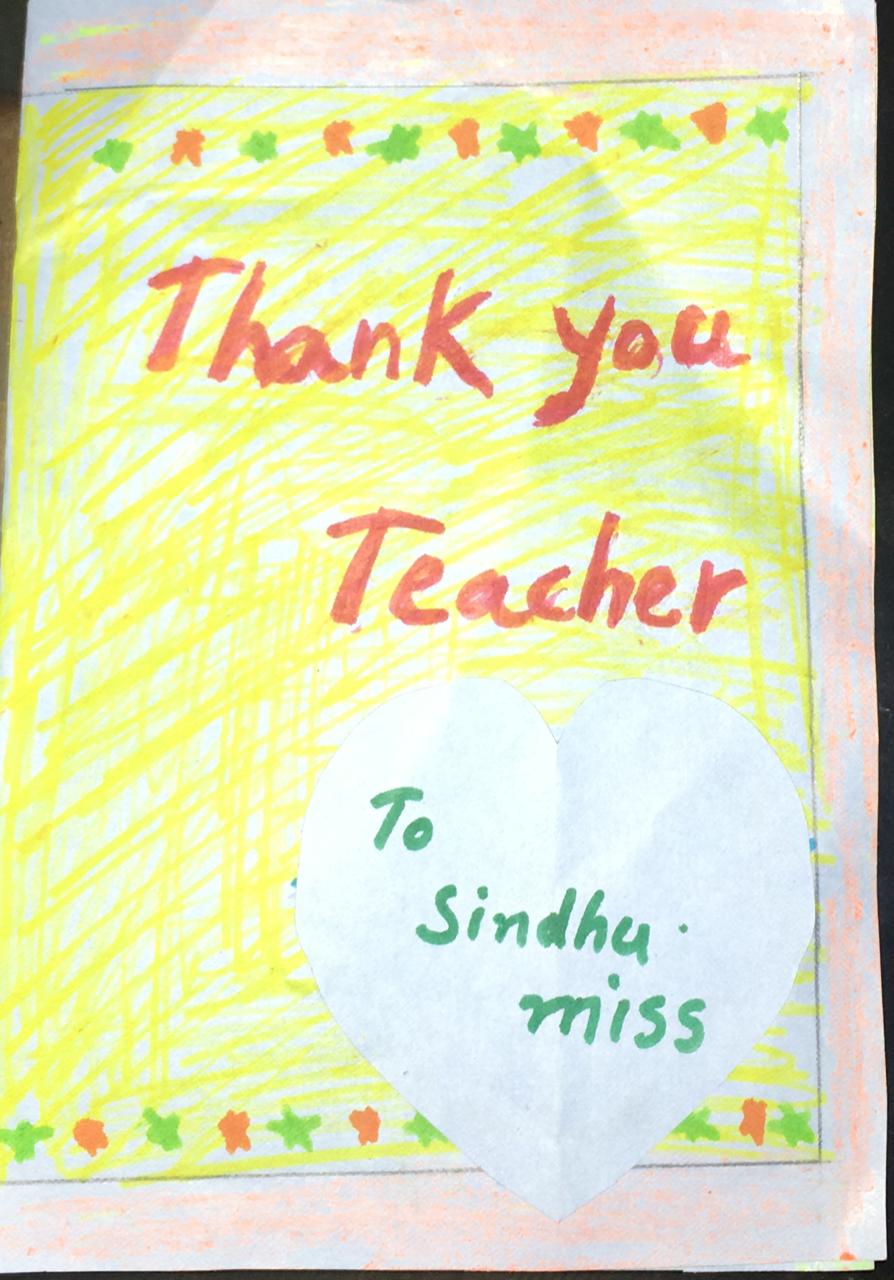 Thank you
Teacher
To
Sindhu.
miss